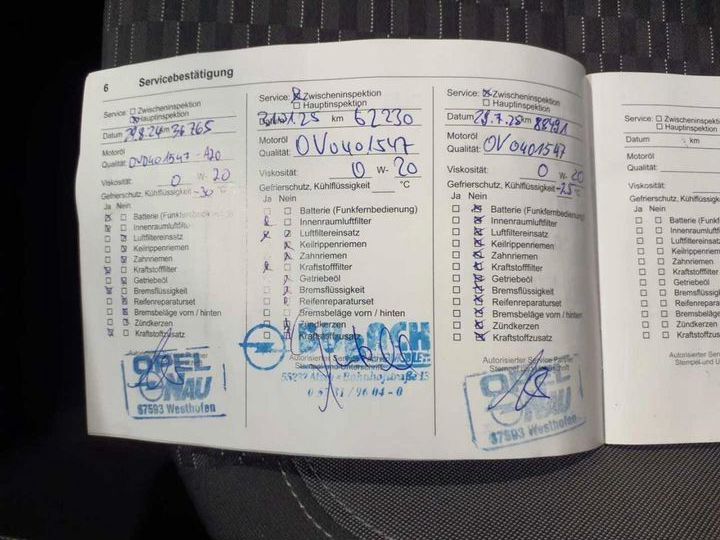 6 Servicebestätigung
Service: Zwischeninspektion
Hauptinspektion
Datum 29.8.24 km 34765
Motoröl
Qualität: OV0401547 - A20
Viskosität: 0 W- 20
Gefrierschutz, Kühlflüssigkeit -30 °C
Ja Nein
Batterie
Innenraumluftfilter
Luftfiltereinsatz
Keilrippenriemen
Zahnriemen
Kraftstofffilter
Getriebeöl
Bremsflüssigkeit
Reifenreparaturset
Bremsbeläge vorn / hinten
Zündkerzen
Kraftstoffzusatz
Autorisierter Service
OPEL
NAU
67593 Westhofen
Service: Zwischeninspektion
Hauptinspektion
km 62230
Motoröl
Qualität: OV0401547
Viskosität: 0 W- 20
Gefrierschutz, Kühlflüssigkeit °C
Ja Nein
Batterie (Funkfernbedienung)
Innenraumluftfilter
Luftfiltereinsatz
Keilrippenriemen
Zahnriemen
Kraftstofffilter
Getriebeöl
Bremsflüssigkeit
Reifenreparaturset
Bremsbeläge vorn / hinten
Zündkerzen
Kraftstoffzusatz
Autorisierter Service
Stempel und Unterschrift
Bahnhofstraße
Service: Zwischeninspektion
Hauptinspektion
Datum 28.7.25 km 88491
Motoröl
Qualität: OV0401547
Viskosität: 0 W- 20
Gefrierschutz, Kühlflüssigkeit -25 °C
Ja Nein
Batterie (Funkfernbedienung)
Innenraumluftfilter
Luftfiltereinsatz
Keilrippenriemen
Zahnriemen
Kraftstofffilter
Getriebeöl
Bremsflüssigkeit
Reifenreparaturset
Bremsbeläge vorn / hinten
Zündkerzen
Kraftstoffzusatz
Autorisierter Service Partner
OPEL
NAU
67593 Westhofen
Service: Zwischeninspektion
Hauptinspektion
Datum km
Motoröl
Qualität:
Viskosität:
Gefrierschutz, Kühlflüssigkeit
Ja Nein
Batterie (Funkfernb
Innenraumluftfilter
Luftfiltereinsatz
Keilrippenriemen
Zahnriemen
Kraftstofffilter
Getriebeöl
Bremsflüssigkeit
Reifenreparatu
Bremsbeläge vo
Zündkerzen
Kraftstoffzusat
Autorisierter
Stempel und U